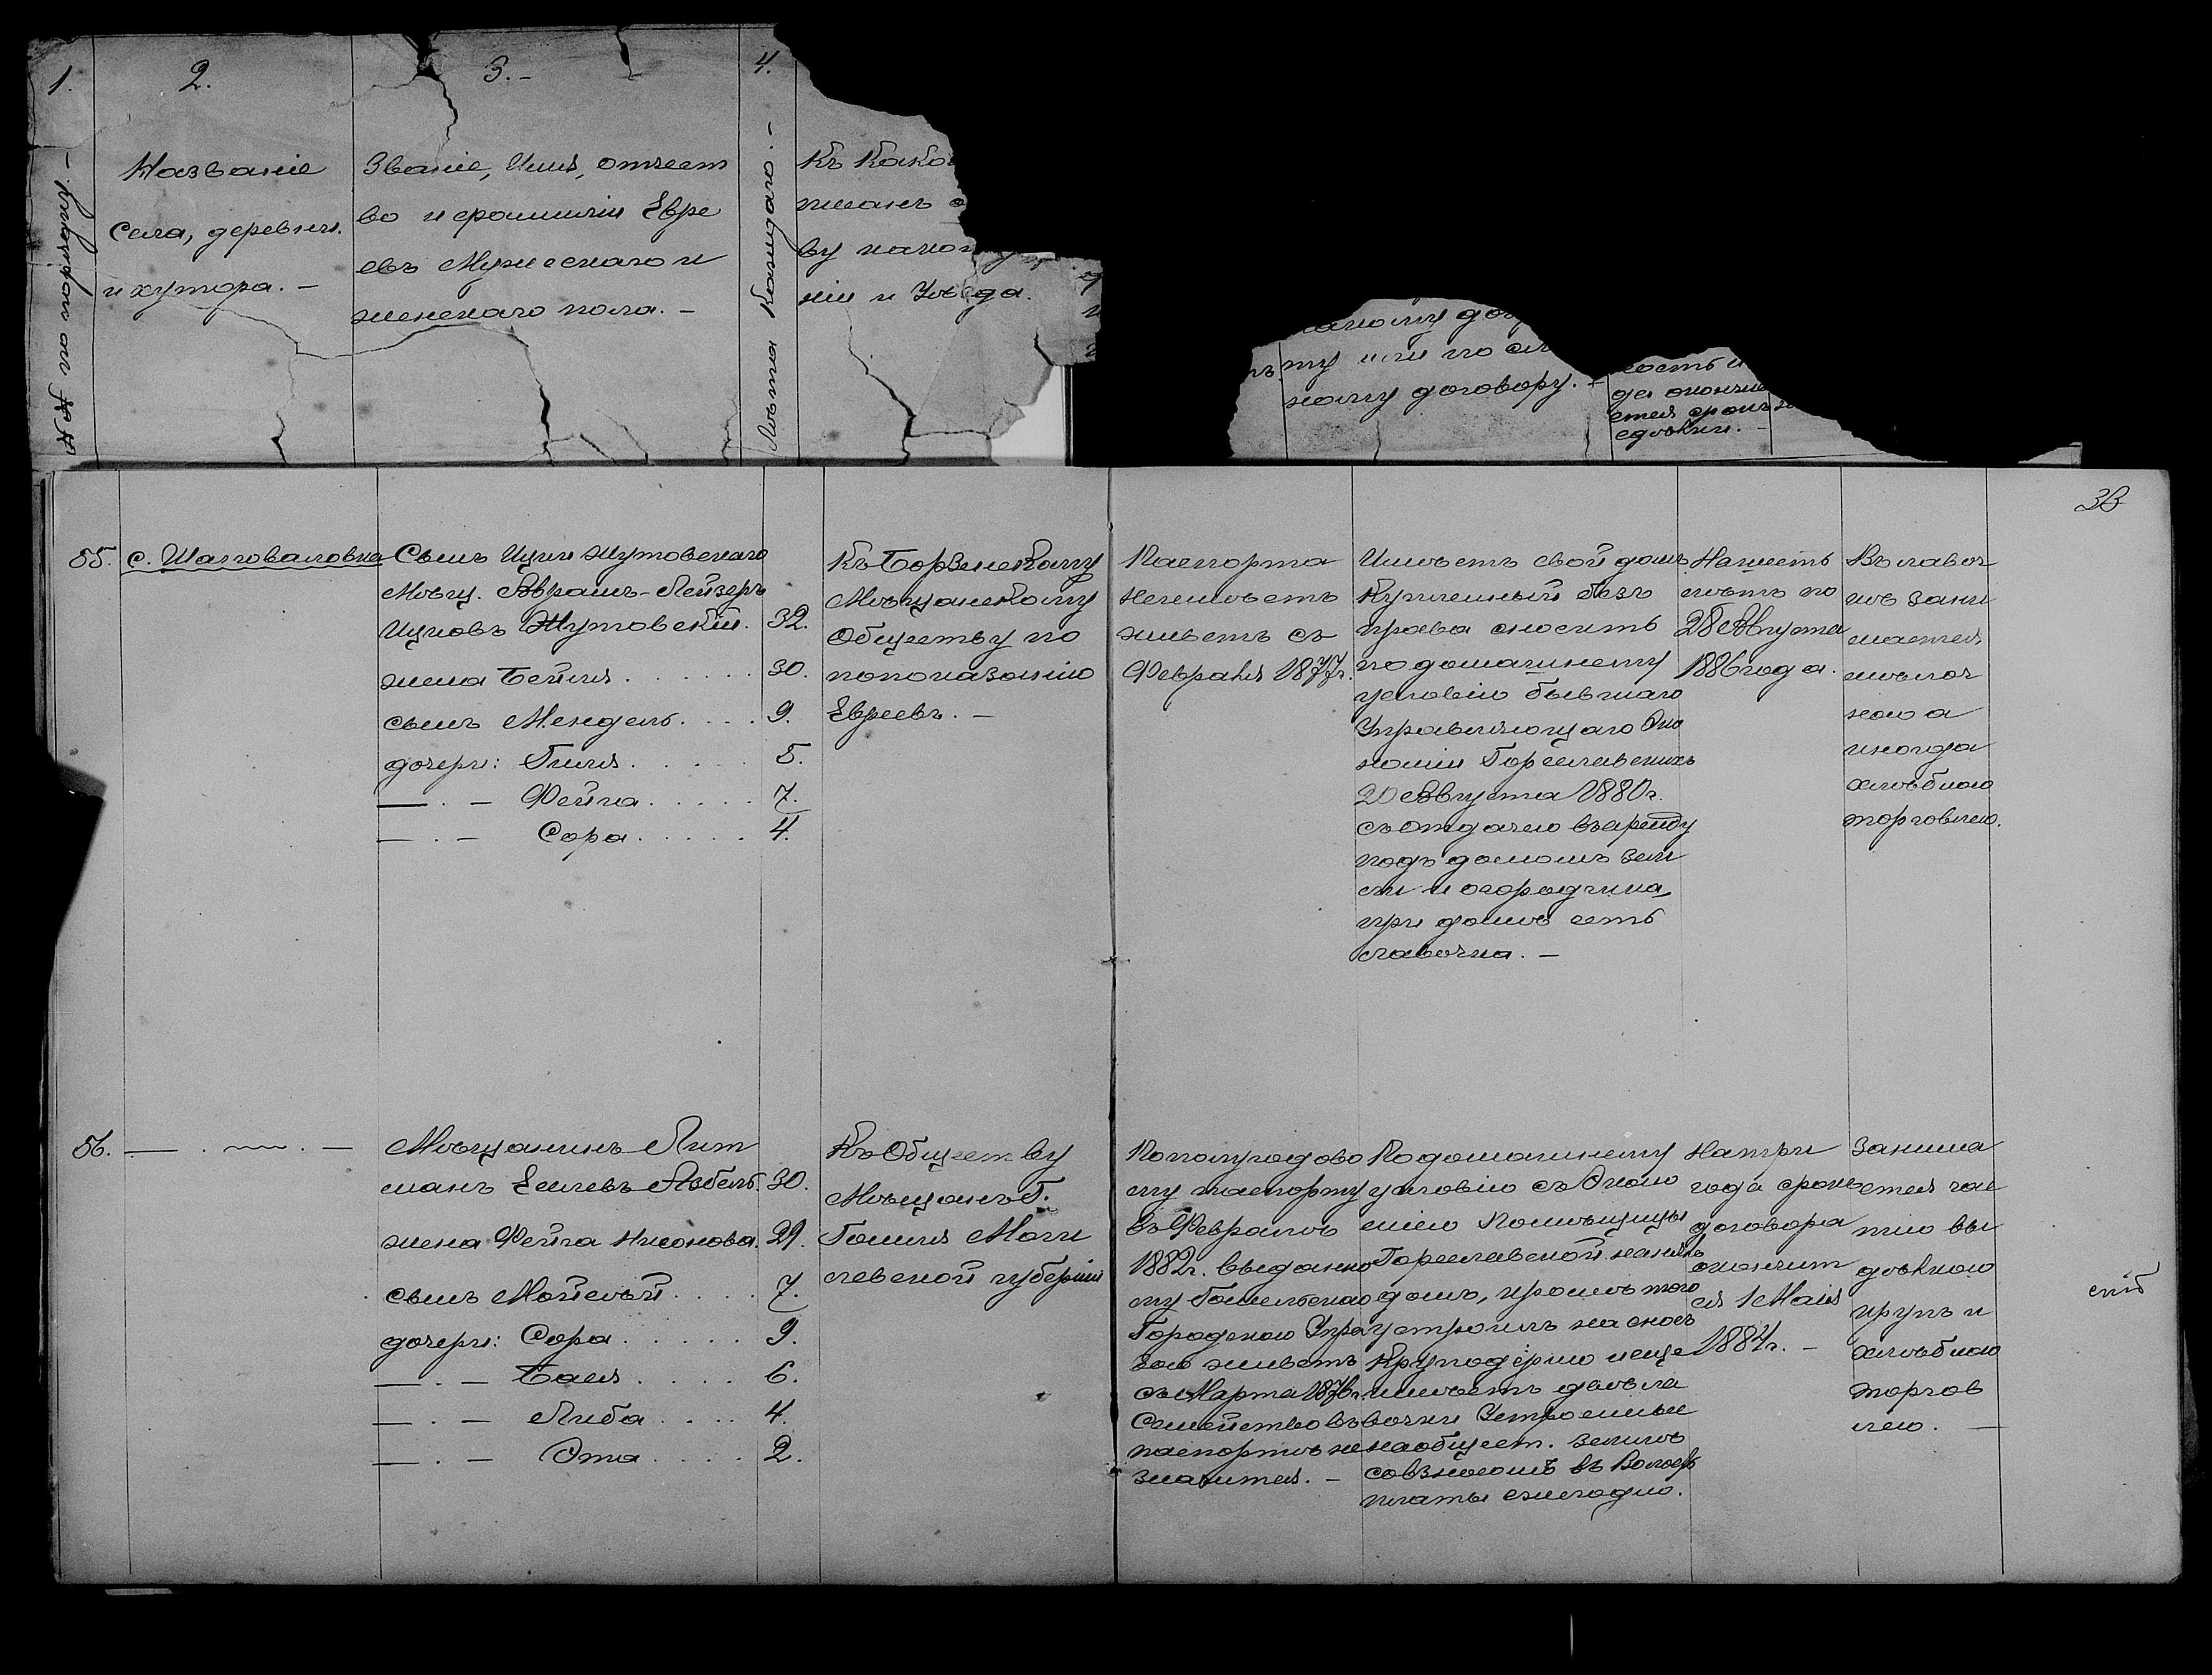 1.
2.
3.-
4.
№№ по порядку. -
Названіе
села, деревни
и хутора. -
Званіе, Имя, отчест
во и фамилія Евре
евъ Мужескаго и
женскаго пола. -
Сколько кому лѣтъ
Къ како
ву какой
ніи и Уѣзда.
какому до
ту или по
ному договору. -
да окончи
ется срокъ
сдѣлки. -
38
55.
с. Шаповаловка
Сынъ Ицки Жутовскаго
Мѣщ. Абрамъ-Лейзеръ
Ицковъ Жутовскій. 32.
жена Бейля. . . . . . . 30.
сынъ Мендель. . . . 9.
дочери: Гиля. . . . . . 5.
— . — Фейга. . . . . . 7.
— . — Сора. . . . . . 4.
Къ Борзенскому
Мѣщанскому
Обществу по
попоказанію
Евреевъ. —
Паспорта
неимѣетъ
живетъ съ
Февраля 1877г.
Имѣетъ свой домъ
Купленный безъ
права сносить
по домашнему
условію бывшаго
Управляющаго Эко
номіи Гореславскихъ
20 Августа 1880г.
съ отдачею въ аренду
подъ домомъ зем
ли и огородчика
при домѣ есть
лавочка. —
На шесть
лѣтъ по
28 Августа
1886 года.
Въ лавоч
кѣ зани
мается
мѣлоч
ною а
иногда
хлѣбною
торговлею.
56.
— . — . —
Мѣщанинъ Лит
манъ Еселевъ Язбель. 30.
жена Фейга Нисонова. 29.
сынъ Мойсѣй. . . . . 7.
дочери: Сора. . . . . . 9.
— . — Бася. . . . . 6.
— . — Либа. . . . . 4.
— . — Эта. . . . . 2.
Къ Обществу
Мѣщанъ г.
Гомеля Моги
левской губерніи
По полугодово
му паспорту
въ Февралѣ
1882г. выданно
му Гомельскою
Городскою Упра
вою живетъ
съ Марта 1876г.
Семейство въ
паспортѣ не
значится. —
По домашнему
условію съ Эконо
міею Помѣщицы
Гореславской нанялъ
домъ, кромѣ того
устроилъ на сносъ
Круподерню и еще
имѣетъ двѣ ла
вочки Устроенные
на общест. землѣ
со взносомъ въ Волость
платы ежегодно.
На три
года срокъ
договора
окончит
ся 1 Мая
1884г. —
Занима
ется час
тію вы
дѣлкою
крупъ и
хлѣбною
торгов
лею. —